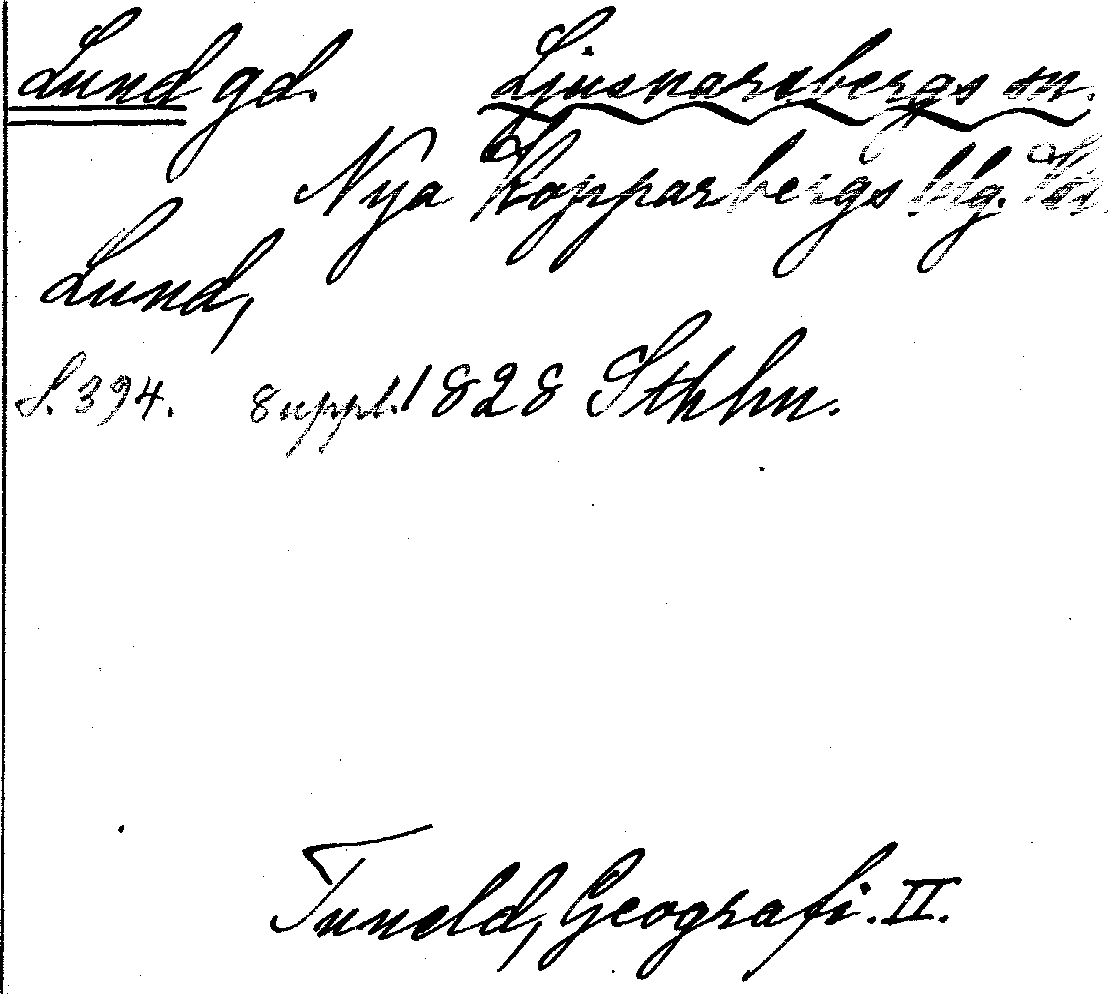 Lund gd. Ljusnarsbergs sn.
Nya Kopparbergs blg.
Lund,
S. 394. suppl. 1828 Sthhm.
Tuneld, Geografi. II.